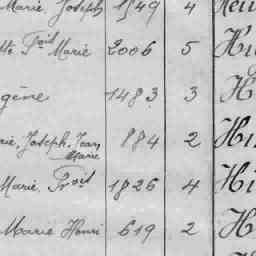 Marie, Joseph 1549 4
tte Froit Marie 2006 5 Hu
gène 1483 3 H
rie, Joseph, Jean Marie 884 2 Hu
Marie, Froit 1826 4 Hi
Marie Henri 619 2 H